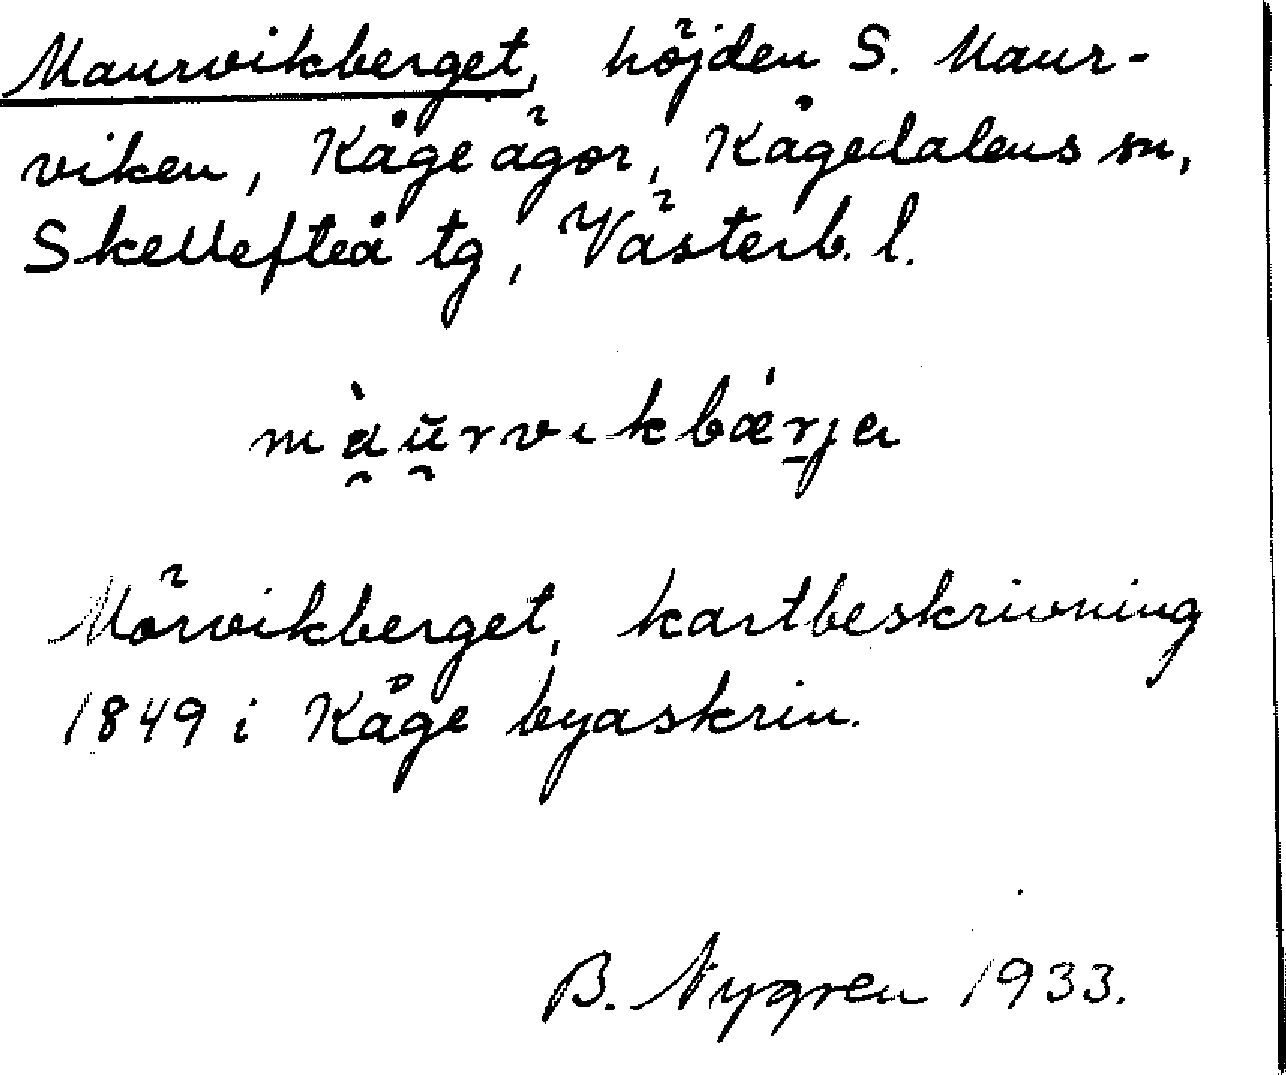 Maurvikberget, höjden S. Maur-
viken, Kåge ägor, Kågedalens sn,
Skellefteå tg, Västerb. l.
màŭ̯rvikbǽr̠ja
Mörvikberget, kartbeskrivning
1849 i Kåge byaskrin.
B. Nygren 1933.